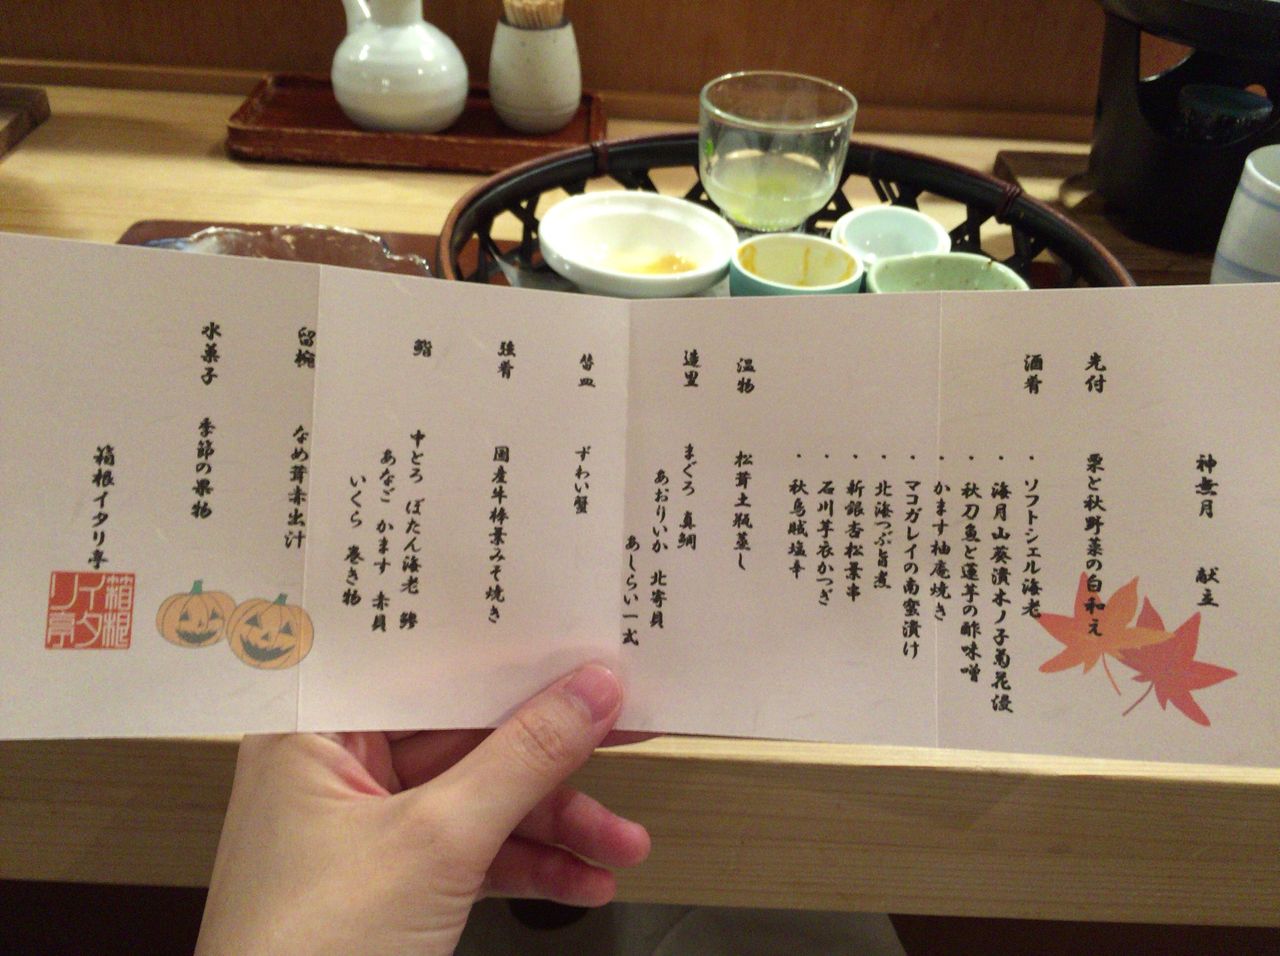 神無月 献立
先付 栗と秋野菜の白和え
酒肴 ・ソフトシェル海老
・海月山葵漬木ノ子菊花浸
・秋刀魚と蓮芋の酢味噌
・かます柚庵焼き
・マコガレイの南蛮漬け
・北海つぶ旨煮
・新銀杏松葉串
・石川芋衣かつぎ
・秋烏賊塩辛
温物 松茸土瓶蒸し
造里 まぐろ 真鯛
あおりいか 北寄貝
あしらい一式
替皿 ずわい蟹
強肴 国産牛棒葉みそ焼き
鮨 中とろ ぼたん海老 鯵
あなご かます 赤貝
いくら 巻き物
留椀 なめ茸赤出汁
水菓子 季節の果物
箱根イタリ亭
箱根
イタ
リ亭